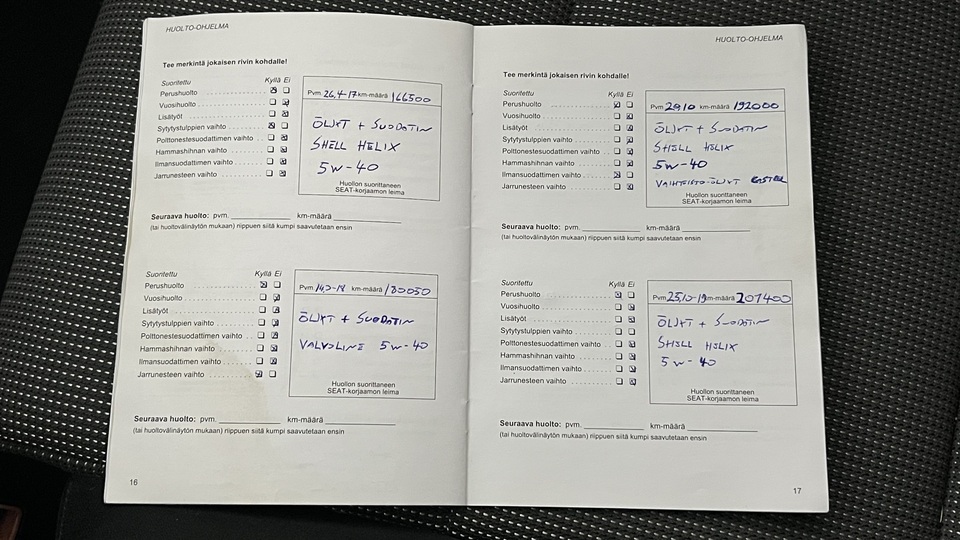 HUOLTO-OHJELMA
Tee merkintä jokaisen rivin kohdalle!
Suoritettu Kyllä Ei
Perushuolto
Vuosihuolto
Lisätyöt
Sytytystulppien vaihto
Polttonestesuodattimen vaihto
Hammashihnan vaihto
Ilmansuodattimen vaihto
Jarrunesteen vaihto
Pvm 26.4-17 km-määrä 166500
ÖLJYT + SUODATIN
SHELL HELIX
5W-40
Huollon suorittaneen
SEAT-korjaamon leima
Seuraava huolto: pvm. km-määrä
(tai huoltovälinäytön mukaan) riippuen siitä kumpi saavutetaan ensin
Suoritettu Kyllä Ei
Perushuolto
Vuosihuolto
Lisätyöt
Sytytystulppien vaihto
Polttonestesuodattimen vaihto
Hammashihnan vaihto
Ilmansuodattimen vaihto
Jarrunesteen vaihto
Pvm km-määrä 180050
ÖLJYT + SUODATIN
VALVOLINE 5W-40
Huollon suorittaneen
SEAT-korjaamon leima
Seuraava huolto: pvm. km-määrä
(tai huoltovälinäytön mukaan) riippuen siitä kumpi saavutetaan ensin
16
HUOLTO-OHJELMA
Tee merkintä jokaisen rivin kohdalle!
Suoritettu Kyllä Ei
Perushuolto
Vuosihuolto
Lisätyöt
Sytytystulppien vaihto
Polttonestesuodattimen vaihto
Hammashihnan vaihto
Ilmansuodattimen vaihto
Jarrunesteen vaihto
Pvm km-määrä 192000
ÖLJYT + SUODATIN
SHELL HELIX
5W-40
VAIHTEISTO-ÖLJYT
Huollon suorittaneen
SEAT-korjaamon leima
Seuraava huolto: pvm. km-määrä
(tai huoltovälinäytön mukaan) riippuen siitä kumpi saavutetaan ensin
Suoritettu Kyllä Ei
Perushuolto
Vuosihuolto
Lisätyöt
Sytytystulppien vaihto
Polttonestesuodattimen vaihto
Hammashihnan vaihto
Ilmansuodattimen vaihto
Jarrunesteen vaihto
Pvm 25.10-19 km-määrä 207400
ÖLJYT + SUODATIN
SHELL HELIX
5W-40
Huollon suorittaneen
SEAT-korjaamon leima
Seuraava huolto: pvm. km-määrä
(tai huoltovälinäytön mukaan) riippuen siitä kumpi saavutetaan ensin
17